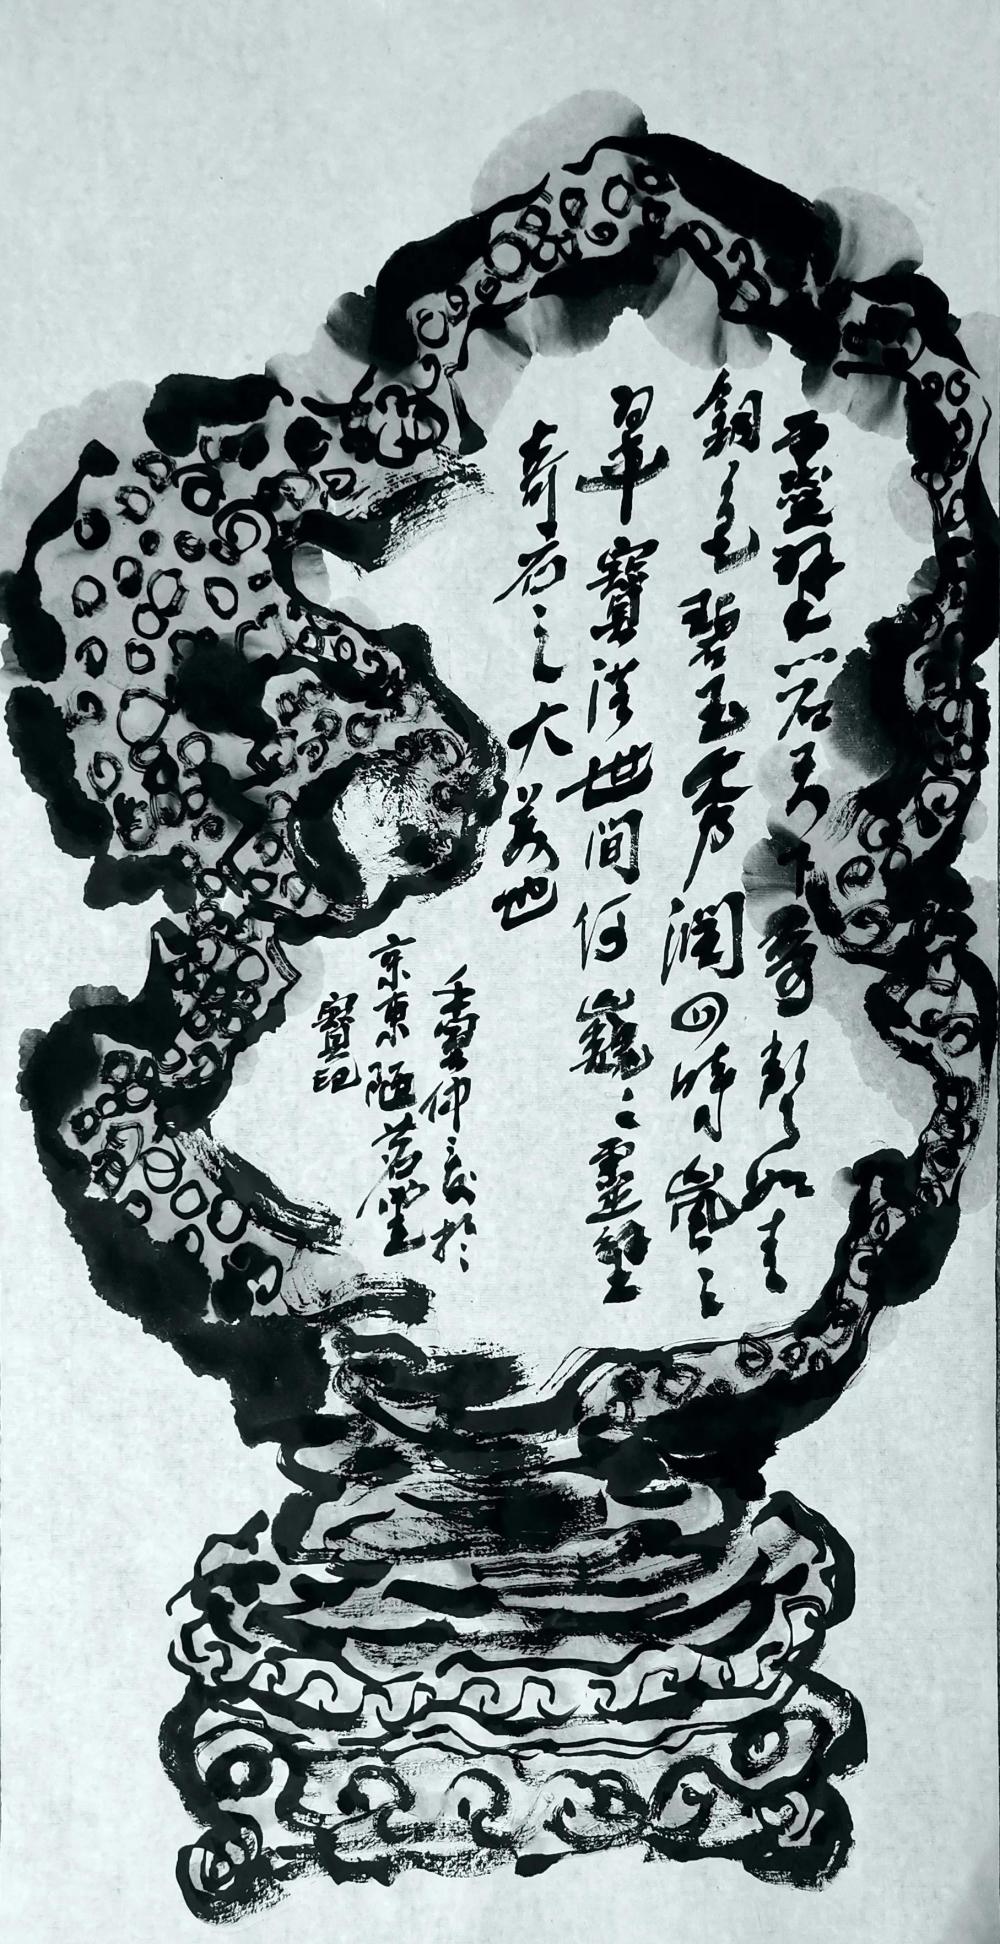 靈璧一石天下奇聲如青
銅色碧玉秀潤四時嵐〻
翠寶落世間何巍〻靈璧
奇石之大美也
壬寅仲夏於
京東陋茗堂
寶記